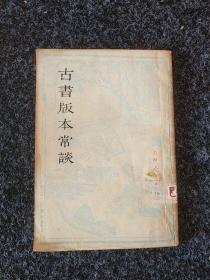 古書版本常談